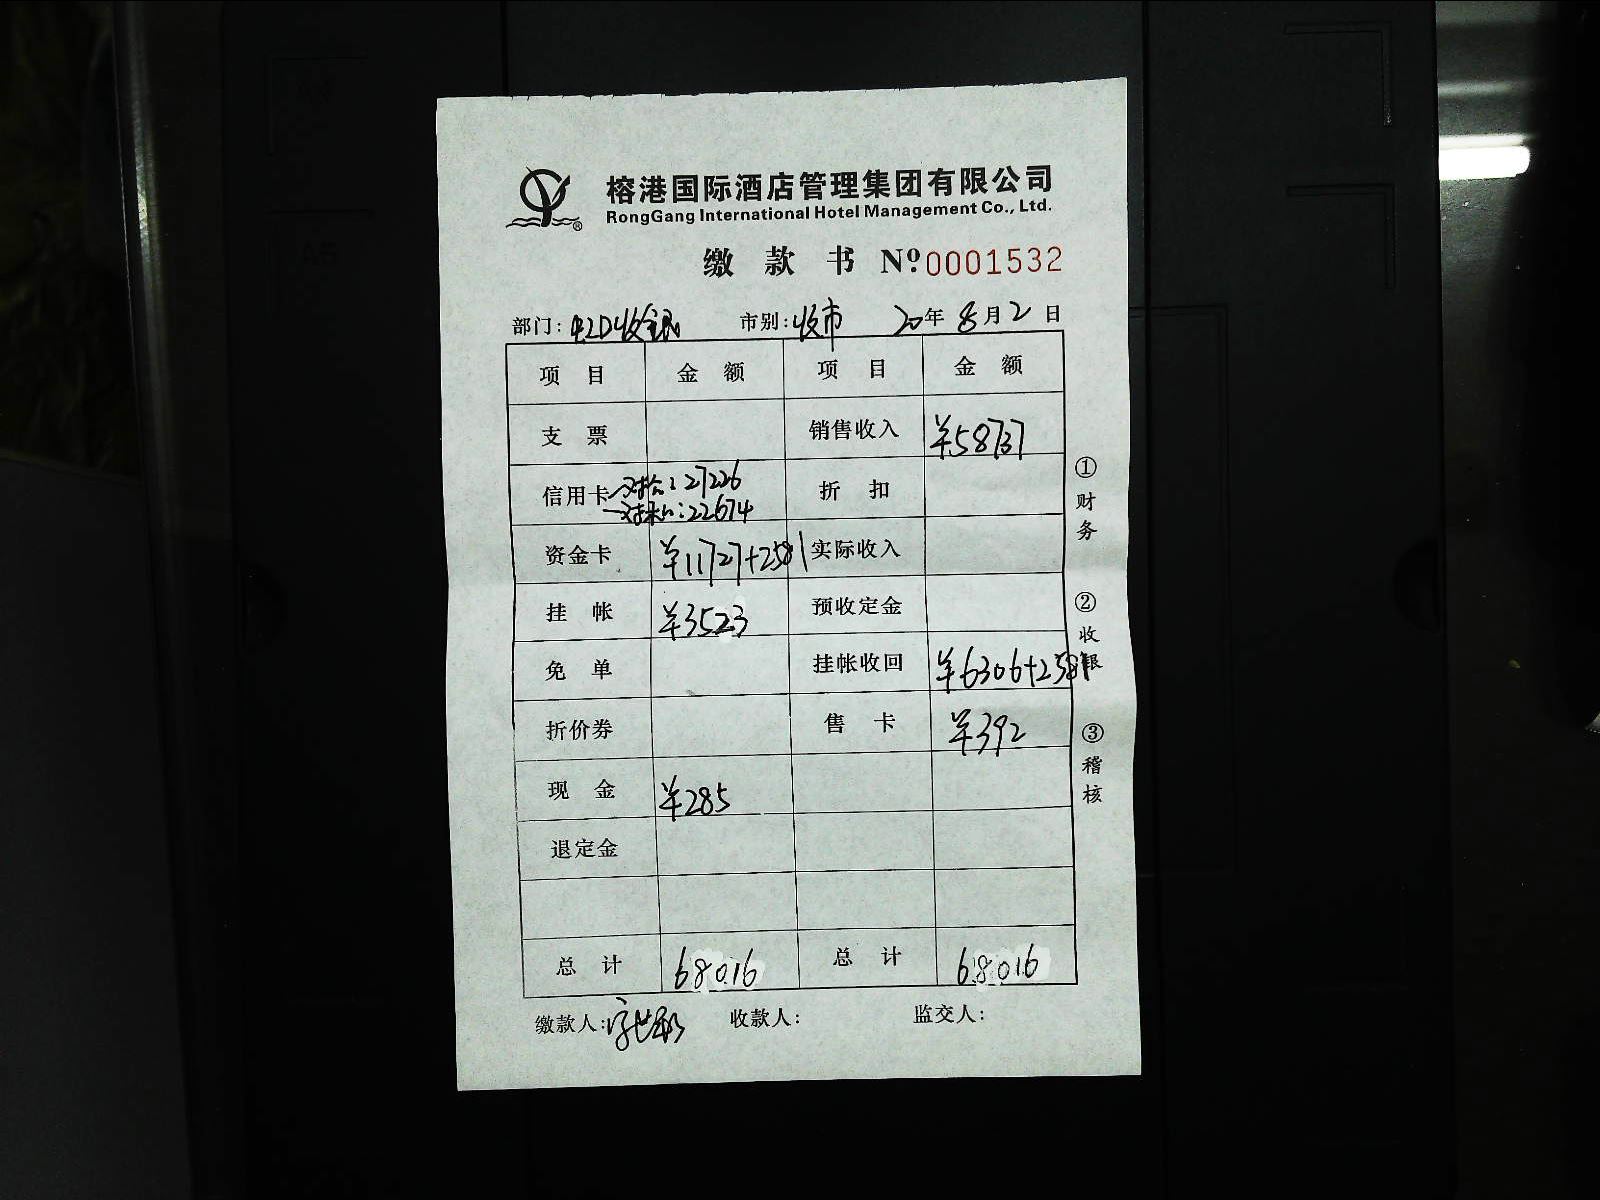 榕港国际酒店管理集团有限公司
RongGang International Hotel Management Co., Ltd.
缴 款 书 Nº 0001532
部门: 收银 市别: 收市 20年 8月 2日
项 目 金 额 项 目 金 额
支 票 销售收入 ¥58737
信用卡 对公:27226 折 扣
22674
资金卡 ¥11727+2581 实际收入
挂 帐 ¥3523 预收定金
免 单 挂帐收回 ¥6306+2581
折价券 售 卡 ¥392
现 金 ¥285
退定金
总 计 68016 总 计 68016
缴款人: 收款人: 监交人:
①财务
②收银
③稽核
A5